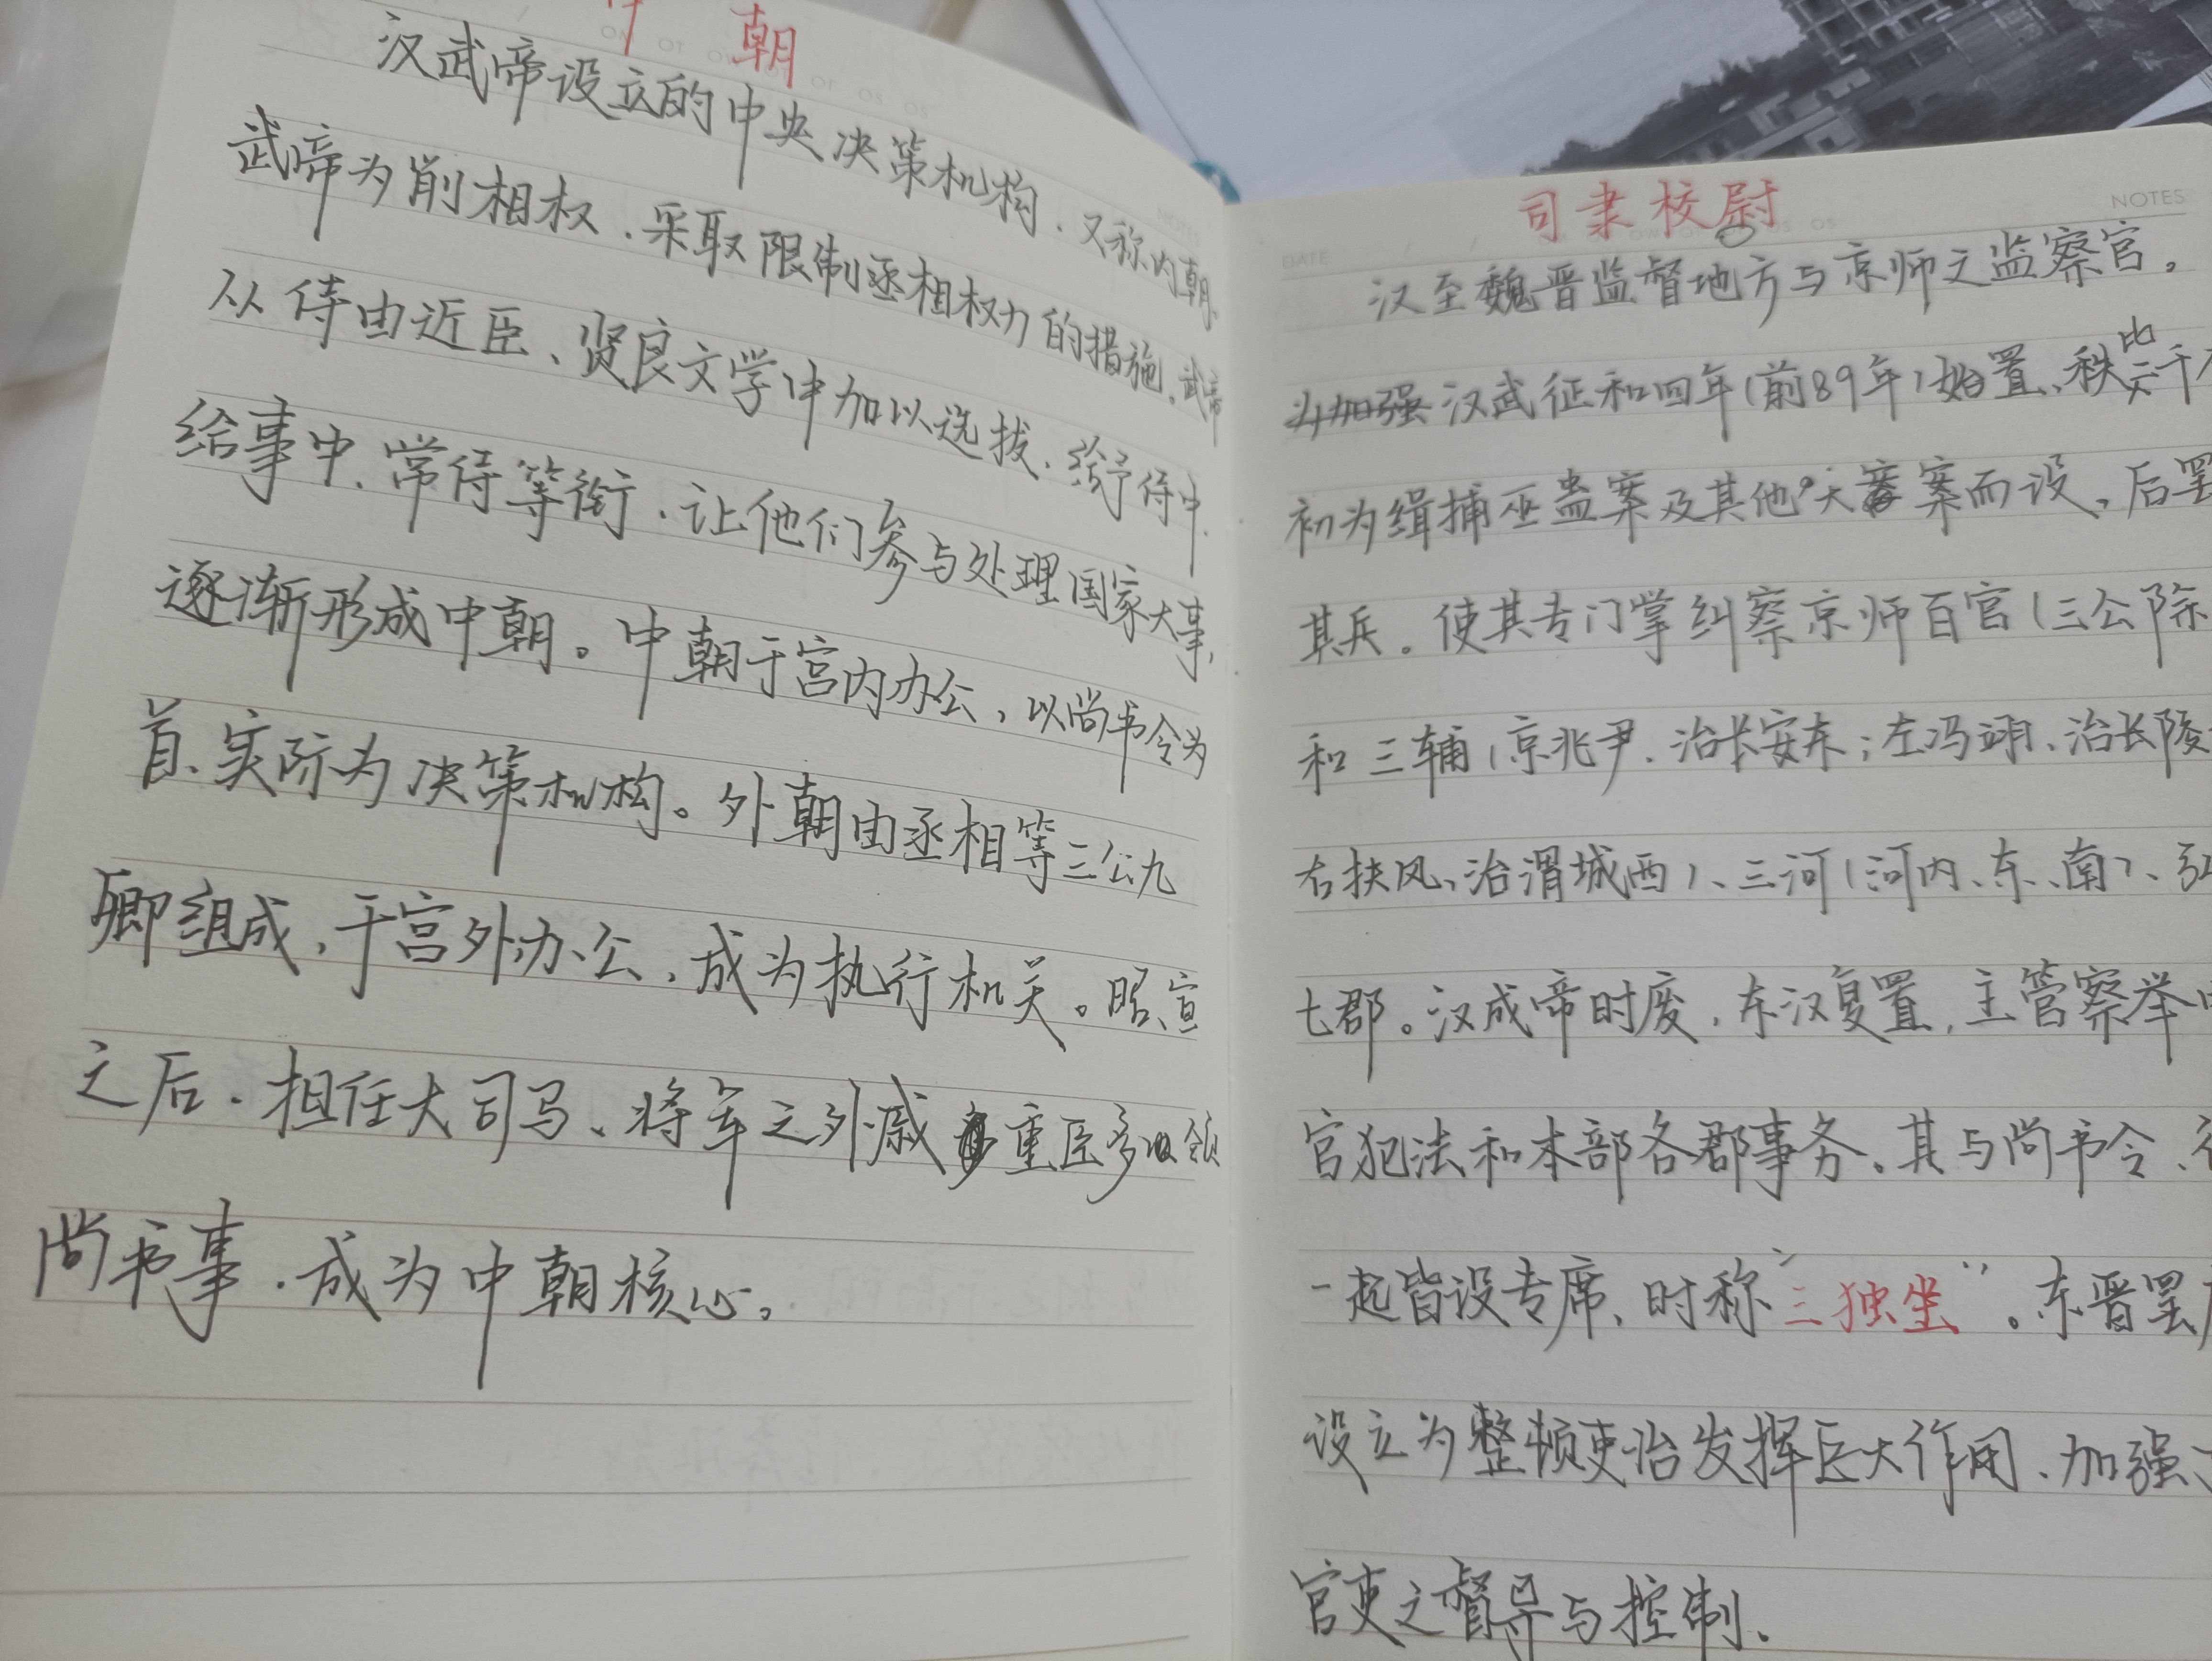 中 朝
汉武帝设立的中央决策机构，又称内朝。
武帝为削相权，采取限制丞相权力的措施，武帝
从侍由近臣、贤良文学中加以选拔，给予侍中、
给事中、常侍等衔，让他们参与处理国家大事，
逐渐形成中朝。中朝于宫内办公，以尚书令为
首，实际为决策机构。外朝由丞相等三公九
卿组成，于宫外办公，成为执行机关。昭、宣
之后，担任大司马、将军之外戚重臣多以领
尚书事，成为中朝核心。
NOTES
司隶校尉
DATE / /
NOTES
汉至魏晋监督地方与京师之监察官。
为加强汉武征和四年（前89年）始置，秩比二千
初为缉捕巫蛊案及其他大案而设，后罢
其兵。使其专门掌纠察京师百官（三公除
和三辅（京兆尹，治长安东；左冯翊，治长陵
右扶风，治渭城西）、三河（河内、东、南）、弘
七郡。汉成帝时废，东汉复置，主管察举
官犯法和本部各郡事务。其与尚书令、
一起皆设专席，时称“三独坐”。东晋罢
设立为整顿吏治发挥巨大作用，加强
官吏之督导与控制。